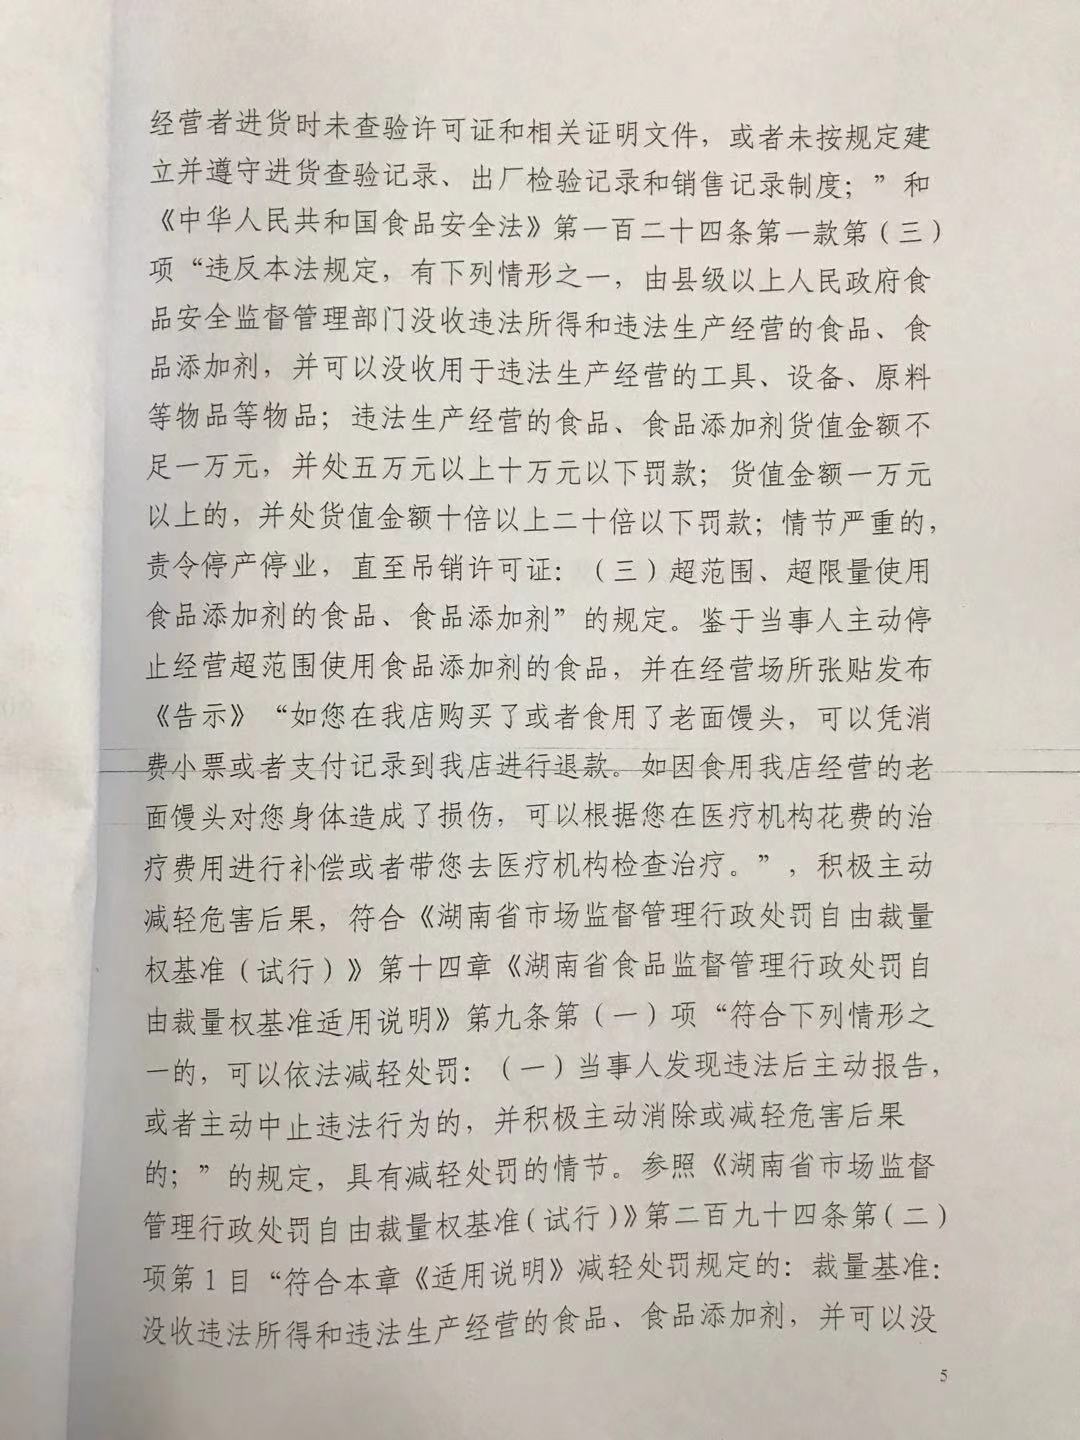 经营者进货时未查验许可证和相关证明文件，或者未按规定建
立并遵守进货查验记录、出厂检验记录和销售记录制度；”和
《中华人民共和国食品安全法》第一百二十四条第一款第（三）
项“违反本法规定，有下列情形之一，由县级以上人民政府食
品安全监督管理部门没收违法所得和违法生产经营的食品、食
品添加剂，并可以没收用于违法生产经营的工具、设备、原料
等物品等物品；违法生产经营的食品、食品添加剂货值金额不
足一万元，并处五万元以上十万元以下罚款；货值金额一万元
以上的，并处货值金额十倍以上二十倍以下罚款；情节严重的，
责令停产停业，直至吊销许可证：（三）超范围、超限量使用
食品添加剂的食品、食品添加剂”的规定。鉴于当事人主动停
止经营超范围使用食品添加剂的食品，并在经营场所张贴发布
《告示》“如您在我店购买了或者食用了老面馒头，可以凭消
费小票或者支付记录到我店进行退款。如因食用我店经营的老
面馒头对您身体造成了损伤，可以根据您在医疗机构花费的治
疗费用进行补偿或者带您去医疗机构检查治疗。”，积极主动
减轻危害后果，符合《湖南省市场监督管理行政处罚自由裁量
权基准（试行）》第十四章《湖南省食品监督管理行政处罚自
由裁量权基准适用说明》第九条第（一）项“符合下列情形之
一的，可以依法减轻处罚：（一）当事人发现违法后主动报告，
或者主动中止违法行为的，并积极主动消除或减轻危害后果
的；”的规定，具有减轻处罚的情节。参照《湖南省市场监督
管理行政处罚自由裁量权基准（试行）》第二百九十四条第（二）
项第1目“符合本章《适用说明》减轻处罚规定的：裁量基准：
没收违法所得和违法生产经营的食品、食品添加剂，并可以没
5